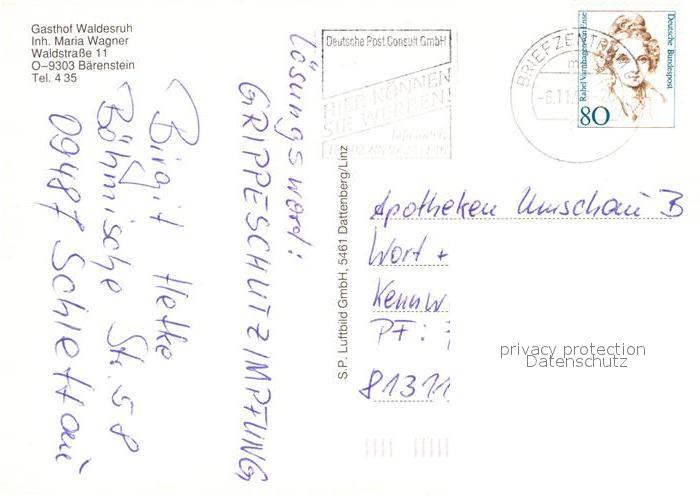 Gasthof Waldesruh
Inh. Maria Wagner
Waldstraße 11
O–9303 Bärenstein
Tel. 4 35
Lösungswort:
GRIPPESCHUTZIMPFUNG
Birgit
Böhmische Str. 58
09487 Schlettau
S.P. Luftbild GmbH, 5461 Dattenberg/Linz
Deutsche Post Consult GmbH
HIER KÖNNEN
SIE WERBEN!
BRIEFZENTRUM
Rahel Varnhagen von Ense
Deutsche Bundespost
80
Apotheken Umschau B
Wort +
Kennw
PF:
81311
privacy protection
Datenschutz